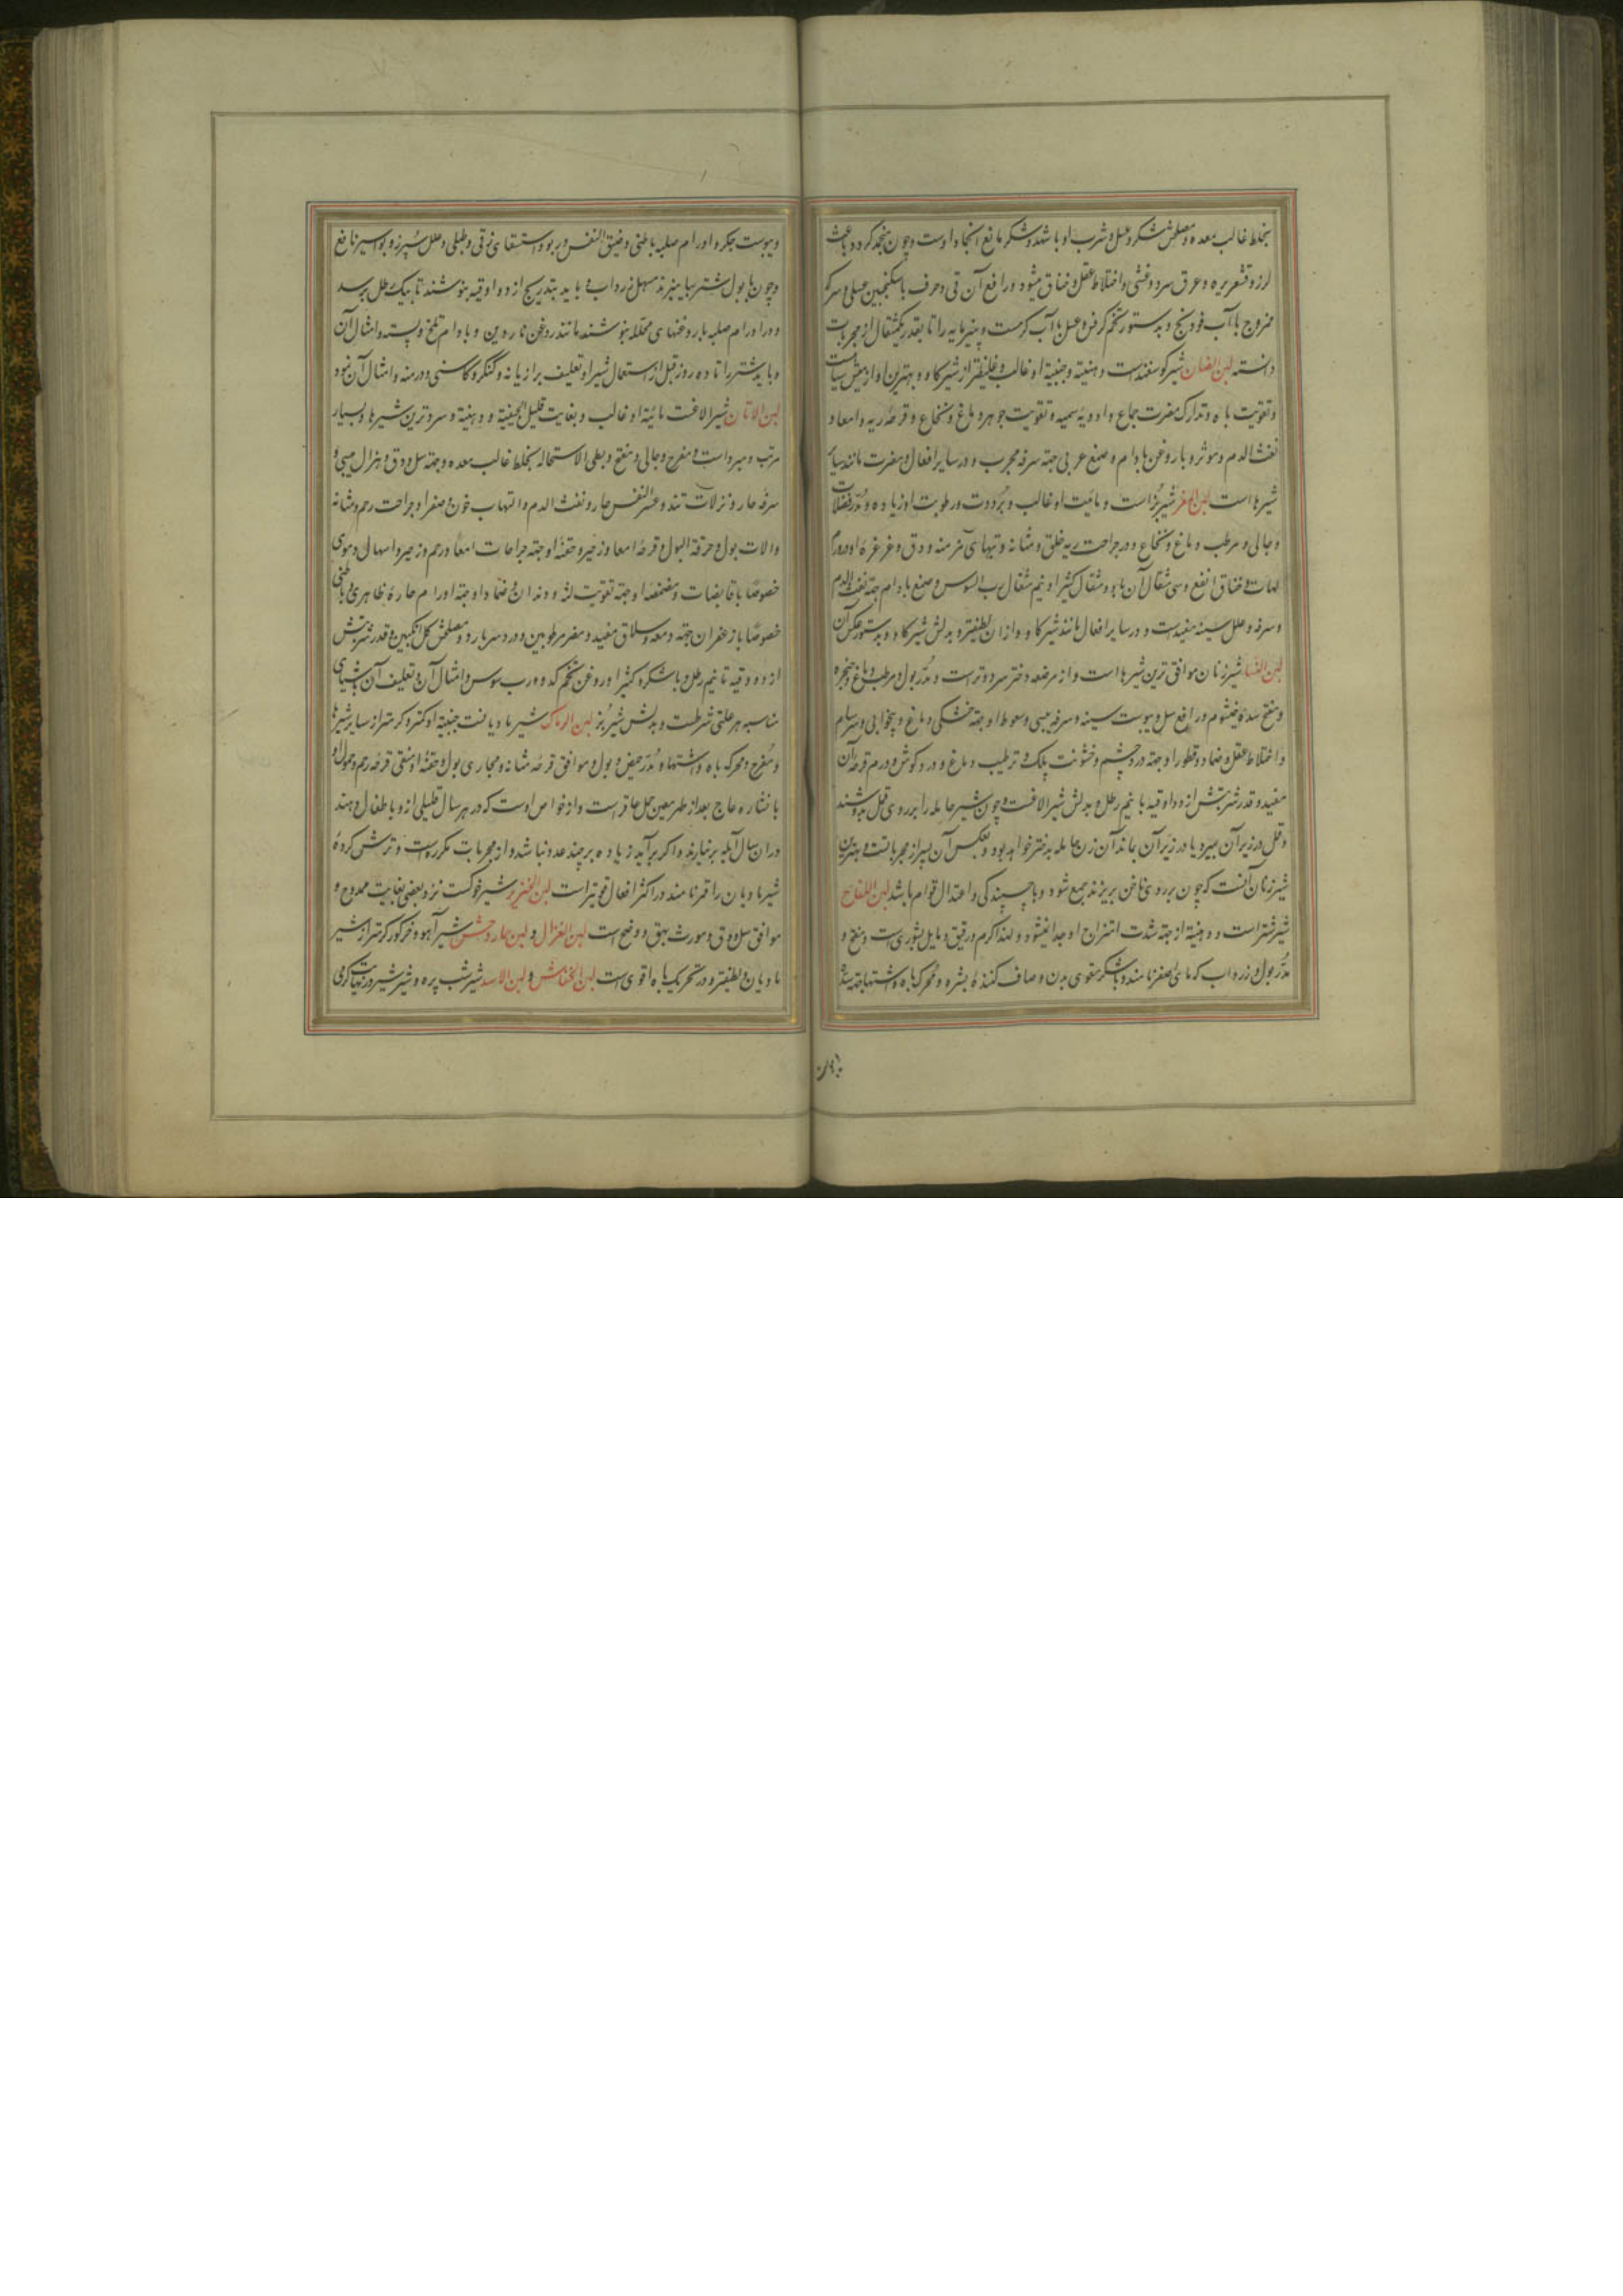 بخلط غالب معده و مصلحش شکر و عسل و شرب او با شهد و شکر مانع انجماد اوست و چون منجمد کردد باعث
لرز و قشعریره و عرق سرد و غشی و اختلاط عقل و خناق میشود و رافع آن قی و حرف با سکنجبین عسلی و سرکه
ممزوج با آب فودنج و بدستور تخم کرفس و عسل با آب کرمست و پنیرمایه را تا بقدر یکمثقال از مجربات
دانسته لبن الضان شیر کوسفند است و دهنیة و جبنیة او غالب و غلیظتر از شیر کاو و بهترین او از میش سیاهست
و تقویت باه و تدارک مضرت جماع و ادویه سمیه و تقویت جوهر دماغ و نخاع و قرحه ریه و امعا و
نفث الدم و موثر و با روغن بادام و صمغ عربی جهة سرفه مجرب و در سایر افعال و مضرت مانند سایر
شیرها است لبن المغر شیر بُز است و مائیت او غالب و بُرودت و رطوبت او زیاده و مُدّر فضلات
و جالی و مرطب دماغ و نخاع و در جراحت ریه و حلق و مثانه و تبهای مزمنه و دق و غرغرهٔ او ورم
لهات و خناق انفع و سی مثقال آن با دو مثقال کثیرا و نیم مثقال رب السوس و صمغ بادام جهة نفث الدم
و سرفه و علل سینه مفیدست و در سایر افعال مانند شیر کاو و از ان لطیفتر و بدلش شیر کاو و بدستور عکس آن
لبن النسا شیر زنان موافق ترین شیرها است و از مرضعه دختر سرد و تر است و مُدّر بول و مرطب دماغ و حنجره
و مفتح سدهٔ خیشوم و رافع سل و یبوست سینه و سرفه یبسی و سعوط او جهة خشکی دماغ و بیخوابی و سرسام
و اختلاط عقل و ضماد و قطور او جهة درد چشم و خشونت پلک و ترطیب دماغ و درد کوش و ورم قرحه آن
مفید و قدر شربتش از دو اوقیه تا نیم رطل و بدلش شیر الاغست و چون شیر حامله را بر روی قمل بدوشند
و قمل در زیر آن بمیرد یا در زیر آن بماند آن زن حامله بدختر خواهد بود و بعکس آن بپسر از مجرباتست و بهترین
شیر زنان آنست که چون بر روی ناخن بریزند جمع شود و با چسپندکی و اعتدال قوام باشد لبن اللقاح
شیر شتر است و دهنیة از جهة شدت امتزاج او جدا نمیشود و لهذا کرم و رقیق و مایل بشوری است و مفتح و
مُدّر بول و زرداب که مای اصفر نامند و با شکر مقوی بدن و صاف کنندهٔ بشره و محرک باه و اشتها و جهة سدهٔ
و یبوست جکر و اورام صلبه باطنی و ضیق النفس و ربو و استسقای زقی و طبلی و علل سُپرز و بواسیر نافع
و چون با بول شتر بیامیزند مسهل زرداب و باید بتدریج از دو اوقیه بنوشند تا بیک رطل برسد
و در اورام صلبه با روغنهای محلله بنوشند مانند روغن ناردین و بادام تلخ و پسته و امثال آن
و باید شتر را تا ده روز قبل از استعمال شیر او تعلیف برازیانه و کنکر و کاسنی و درمنه و امثال آن نمود
لبن الاتان شیر الاغست مائیة او غالب و بغایت قلیل الجبنیة و دهنیة و سردترین شیرها و بسیار
مرتب و مبرد است و مفرح و جالی و مفتح و بطی الاستحاله بخلط غالب معده و جهة سل و دق و هزال یبسی و
سرفه حار و نزلات تند و عسر النفس حار و نفث الدم و التهاب خون و صفرا و جراحت رحم و مثانه
و الات بول و حرقة البول و قرحه امعا و زحیر و حقنهٔ او جهة جراحات امعا و رحم و زحیر و اسهال دموی
خصوصًا با قابضات و مضمضهٔ او جهة تقویت لثه و دندان و ضماد او جهة اورام حارهٔ ظاهری و باطنی
خصوصًا با زعفران جهة دمعه و سلاق مفید و مضر مرطوبین و درد سر بارد و مصلحش کل انکبین و قدر شربتش
از ده وقیه تا نیم رطل و با شکر و کثیرا و روغن تخم کدو و رب سوس و امثال آن و تعلیف آن باشیای
مناسبه هر علتی شرطست و بدلش شیر بُز لبن الرماک شیر مادیانست جبنیة او کمتر و کرمتر از سایر شیرها
و مُفرح و محرک باه و اشتها و مُدّر حیض و بول و موافق قرحه مثانه و مجاری بول و حقنهٔ او منقی قرحه رحم و حمول او
با نشاره عاج بعد از طهر معین حمل عاقر است و از خواص اوست که در هر سال قلیلی ازو باطفال دهند
در ان سال آبله برنیارند و اکر برآید زیاده بر چند عدد نباشد و از مجربات مکرره است و ترش کردهٔ
شیر مادیان را قمز نامند در اکثر افعال قویتر است لبن الخنزیر شیر خوکست نزد بعضی بغایت ممدوح و
موافق سل و دق و مورث بهق و وضح است لبن الغزال و لبن حمار وحش شیر آهو و خرکور کرمتر از شیر
مادیان و لطیفتر و در تحریک باه اقوی است لبن الخفاش و لبن الاسد شیر شب پره و شیر شیر در نهایت کرمی